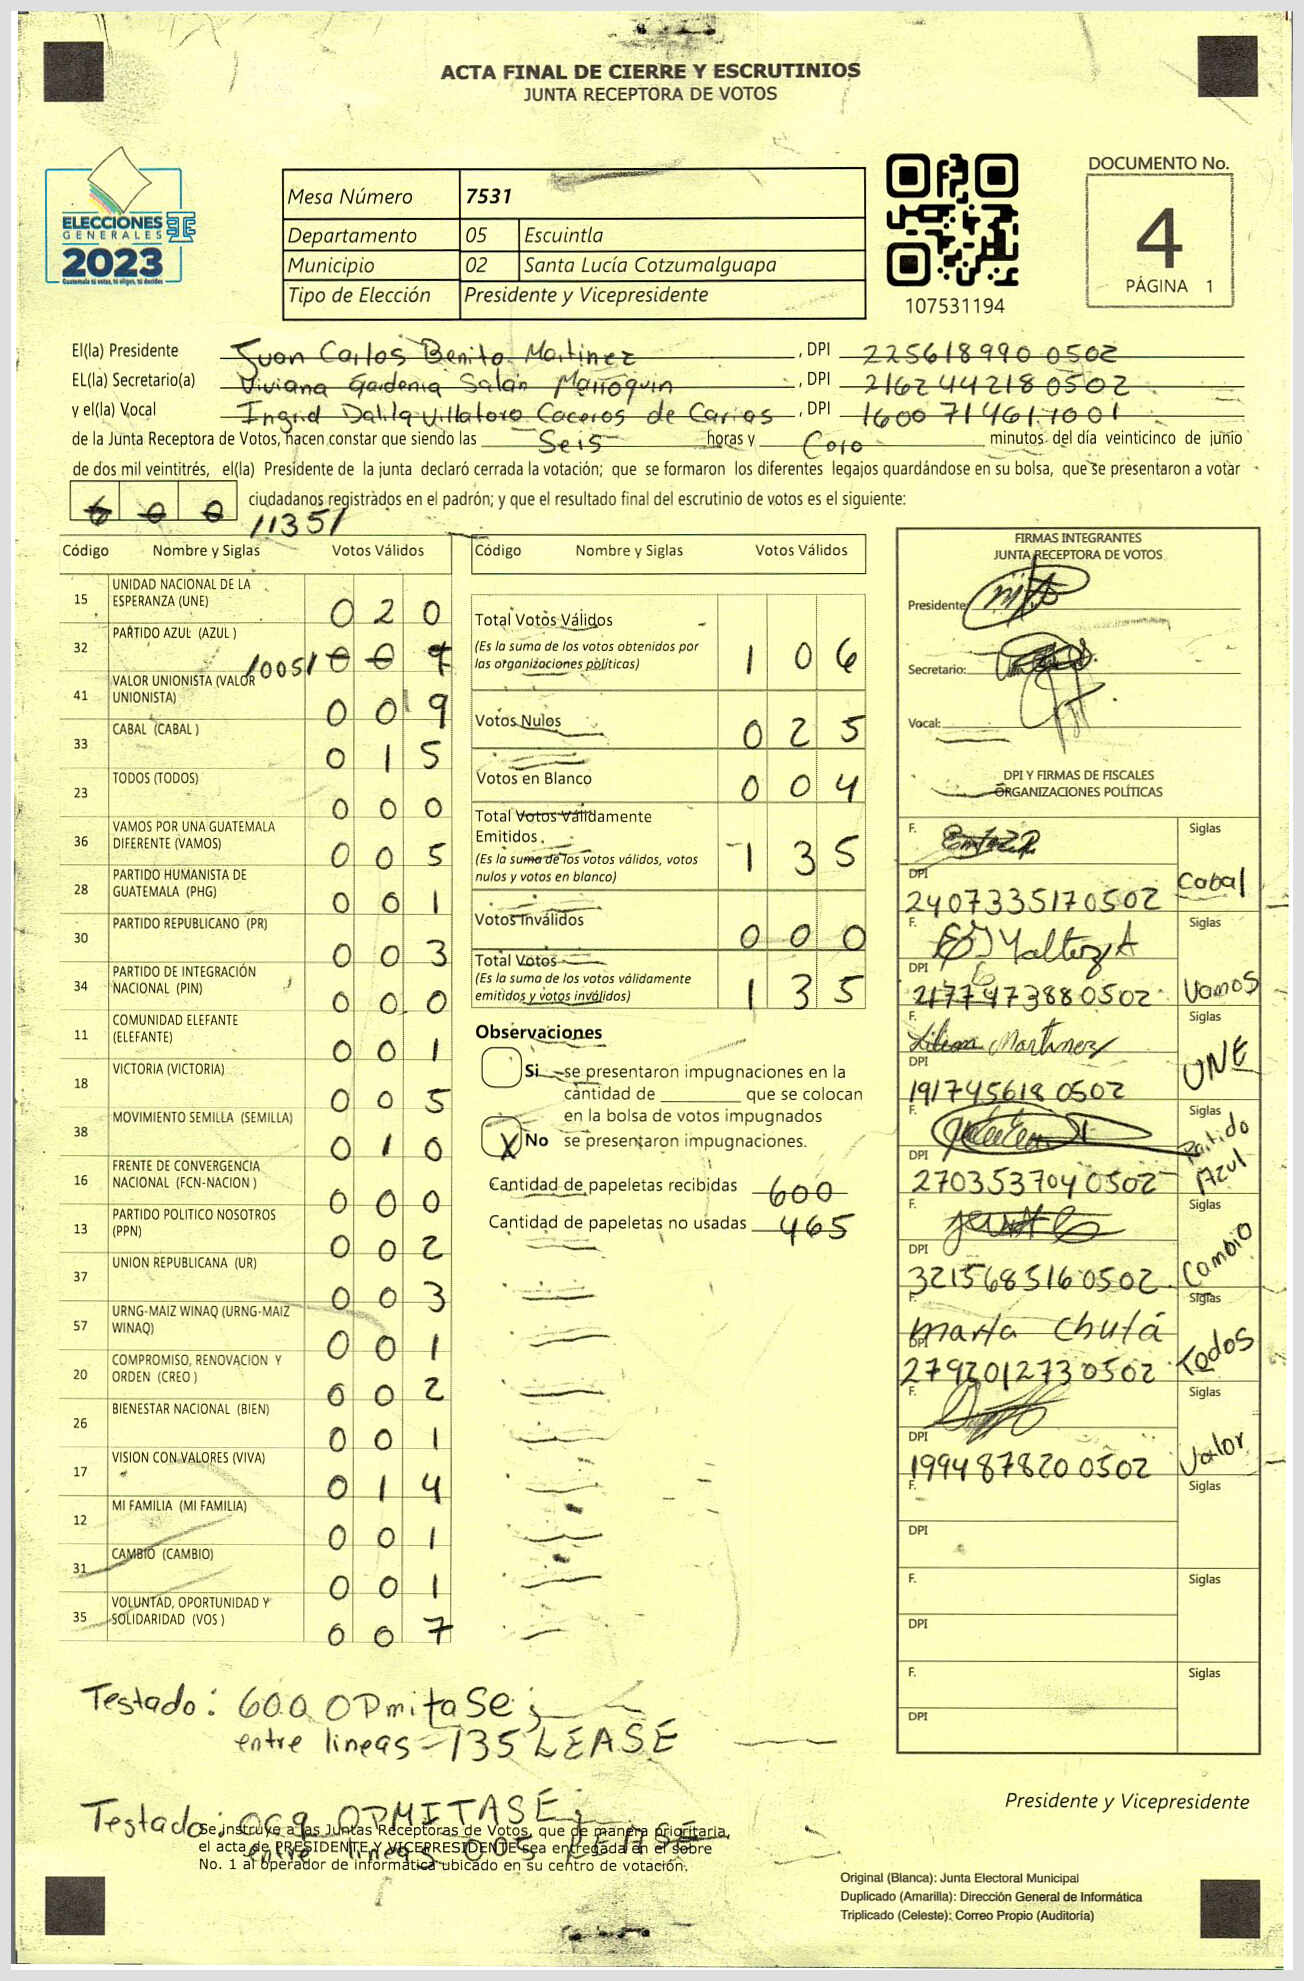 ACTA FINAL DE CIERRE Y ESCRUTINIOS
JUNTA RECEPTORA DE VOTOS
ELECCIONES
GENERALES
2023
Guatemala tú votas, tú eliges, tú decides
Mesa Número 7531
Departamento 05 Escuintla
Municipio 02 Santa Lucía Cotzumalguapa
Tipo de Elección Presidente y Vicepresidente
107531194
DOCUMENTO No.
4
PÁGINA 1
El(la) Presidente Juan Carlos Benito Martinez, DPI 225618990 0502
EL(la) Secretario(a) Viviana Gardenia Salán Marroquin, DPI 216244218 0502
y el(la) Vocal Ingrid Dalila Villatoro Caceros de Carias, DPI 1600 71461 1001
de la Junta Receptora de Votos, hacen constar que siendo las Seis horas y Cero minutos del día veinticinco de junio
de dos mil veintitrés, el(la) Presidente de la junta declaró cerrada la votación; que se formaron los diferentes legajos guardándose en su bolsa, que se presentaron a votar
6 0 0 ciudadanos registrados en el padrón; y que el resultado final del escrutinio de votos es el siguiente:
/135/
Código Nombre y Siglas Votos Válidos
15 UNIDAD NACIONAL DE LA ESPERANZA (UNE) 0 2 0
32 PARTIDO AZUL (AZUL ) /005/ 0 0 9
41 VALOR UNIONISTA (VALOR UNIONISTA) 0 0 9
33 CABAL (CABAL ) 0 1 5
23 TODOS (TODOS) 0 0 0
36 VAMOS POR UNA GUATEMALA DIFERENTE (VAMOS) 0 0 5
28 PARTIDO HUMANISTA DE GUATEMALA (PHG) 0 0 1
30 PARTIDO REPUBLICANO (PR) 0 0 3
34 PARTIDO DE INTEGRACIÓN NACIONAL (PIN) 0 0 0
11 COMUNIDAD ELEFANTE (ELEFANTE) 0 0 1
18 VICTORIA (VICTORIA) 0 0 5
38 MOVIMIENTO SEMILLA (SEMILLA) 0 1 0
16 FRENTE DE CONVERGENCIA NACIONAL (FCN-NACION ) 0 0 0
13 PARTIDO POLITICO NOSOTROS (PPN) 0 0 2
37 UNION REPUBLICANA (UR) 0 0 3
57 URNG-MAIZ WINAQ (URNG-MAIZ WINAQ) 0 0 1
20 COMPROMISO, RENOVACION Y ORDEN (CREO ) 0 0 2
26 BIENESTAR NACIONAL (BIEN) 0 0 1
17 VISION CON VALORES (VIVA) 0 1 4
12 MI FAMILIA (MI FAMILIA) 0 0 1
31 CAMBIO (CAMBIO) 0 0 1
35 VOLUNTAD, OPORTUNIDAD Y SOLIDARIDAD (VOS ) 0 0 7
Código Nombre y Siglas Votos Válidos
Total Votos Válidos 1 0 6
(Es la suma de los votos obtenidos por
las organizaciones políticas)
Votos Nulos 0 2 5
Votos en Blanco 0 0 4
Total Votos Válidamente
Emitidos 1 3 5
(Es la suma de los votos válidos, votos
nulos y votos en blanco)
Votos Inválidos 0 0 0
Total Votos 1 3 5
(Es la suma de los votos válidamente
emitidos y votos inválidos)
Observaciones
Si se presentaron impugnaciones en la
cantidad de ________ que se colocan
en la bolsa de votos impugnados
X No se presentaron impugnaciones.
Cantidad de papeletas recibidas 600
Cantidad de papeletas no usadas 465
FIRMAS INTEGRANTES
JUNTA RECEPTORA DE VOTOS
Presidente:
Secretario:
Vocal:
DPI Y FIRMAS DE FISCALES
ORGANIZACIONES POLÍTICAS
F. Siglas
DPI Cabal
2407335170502
F. Siglas
DPI
2177473880502 Vamos
F. Lilian Martinez Siglas
DPI UNE
191745618 0502
F. Siglas
DPI Partido Azul
270353704 0502
F. Siglas
DPI Cambio
321568516 0502
F. Marta Chutá Siglas
DPI Todos
279201273 0502
F. Siglas
DPI Valor
199487820 0502
F. Siglas
DPI
F. Siglas
DPI
F. Siglas
DPI
Testado: 600 OPmitaSe;
entre lineas - 135 LEASE
Testado: 009 OPMITASE;
entre lineas 005 LEASE
Se instruye a las Juntas Receptoras de Votos, que de manera prioritaria,
el acta de PRESIDENTE Y VICEPRESIDENTE sea entregada en el sobre
No. 1 al operador de informática ubicado en su centro de votación.
Presidente y Vicepresidente
Original (Blanca): Junta Electoral Municipal
Duplicado (Amarilla): Dirección General de Informática
Triplicado (Celeste): Correo Propio (Auditoría)